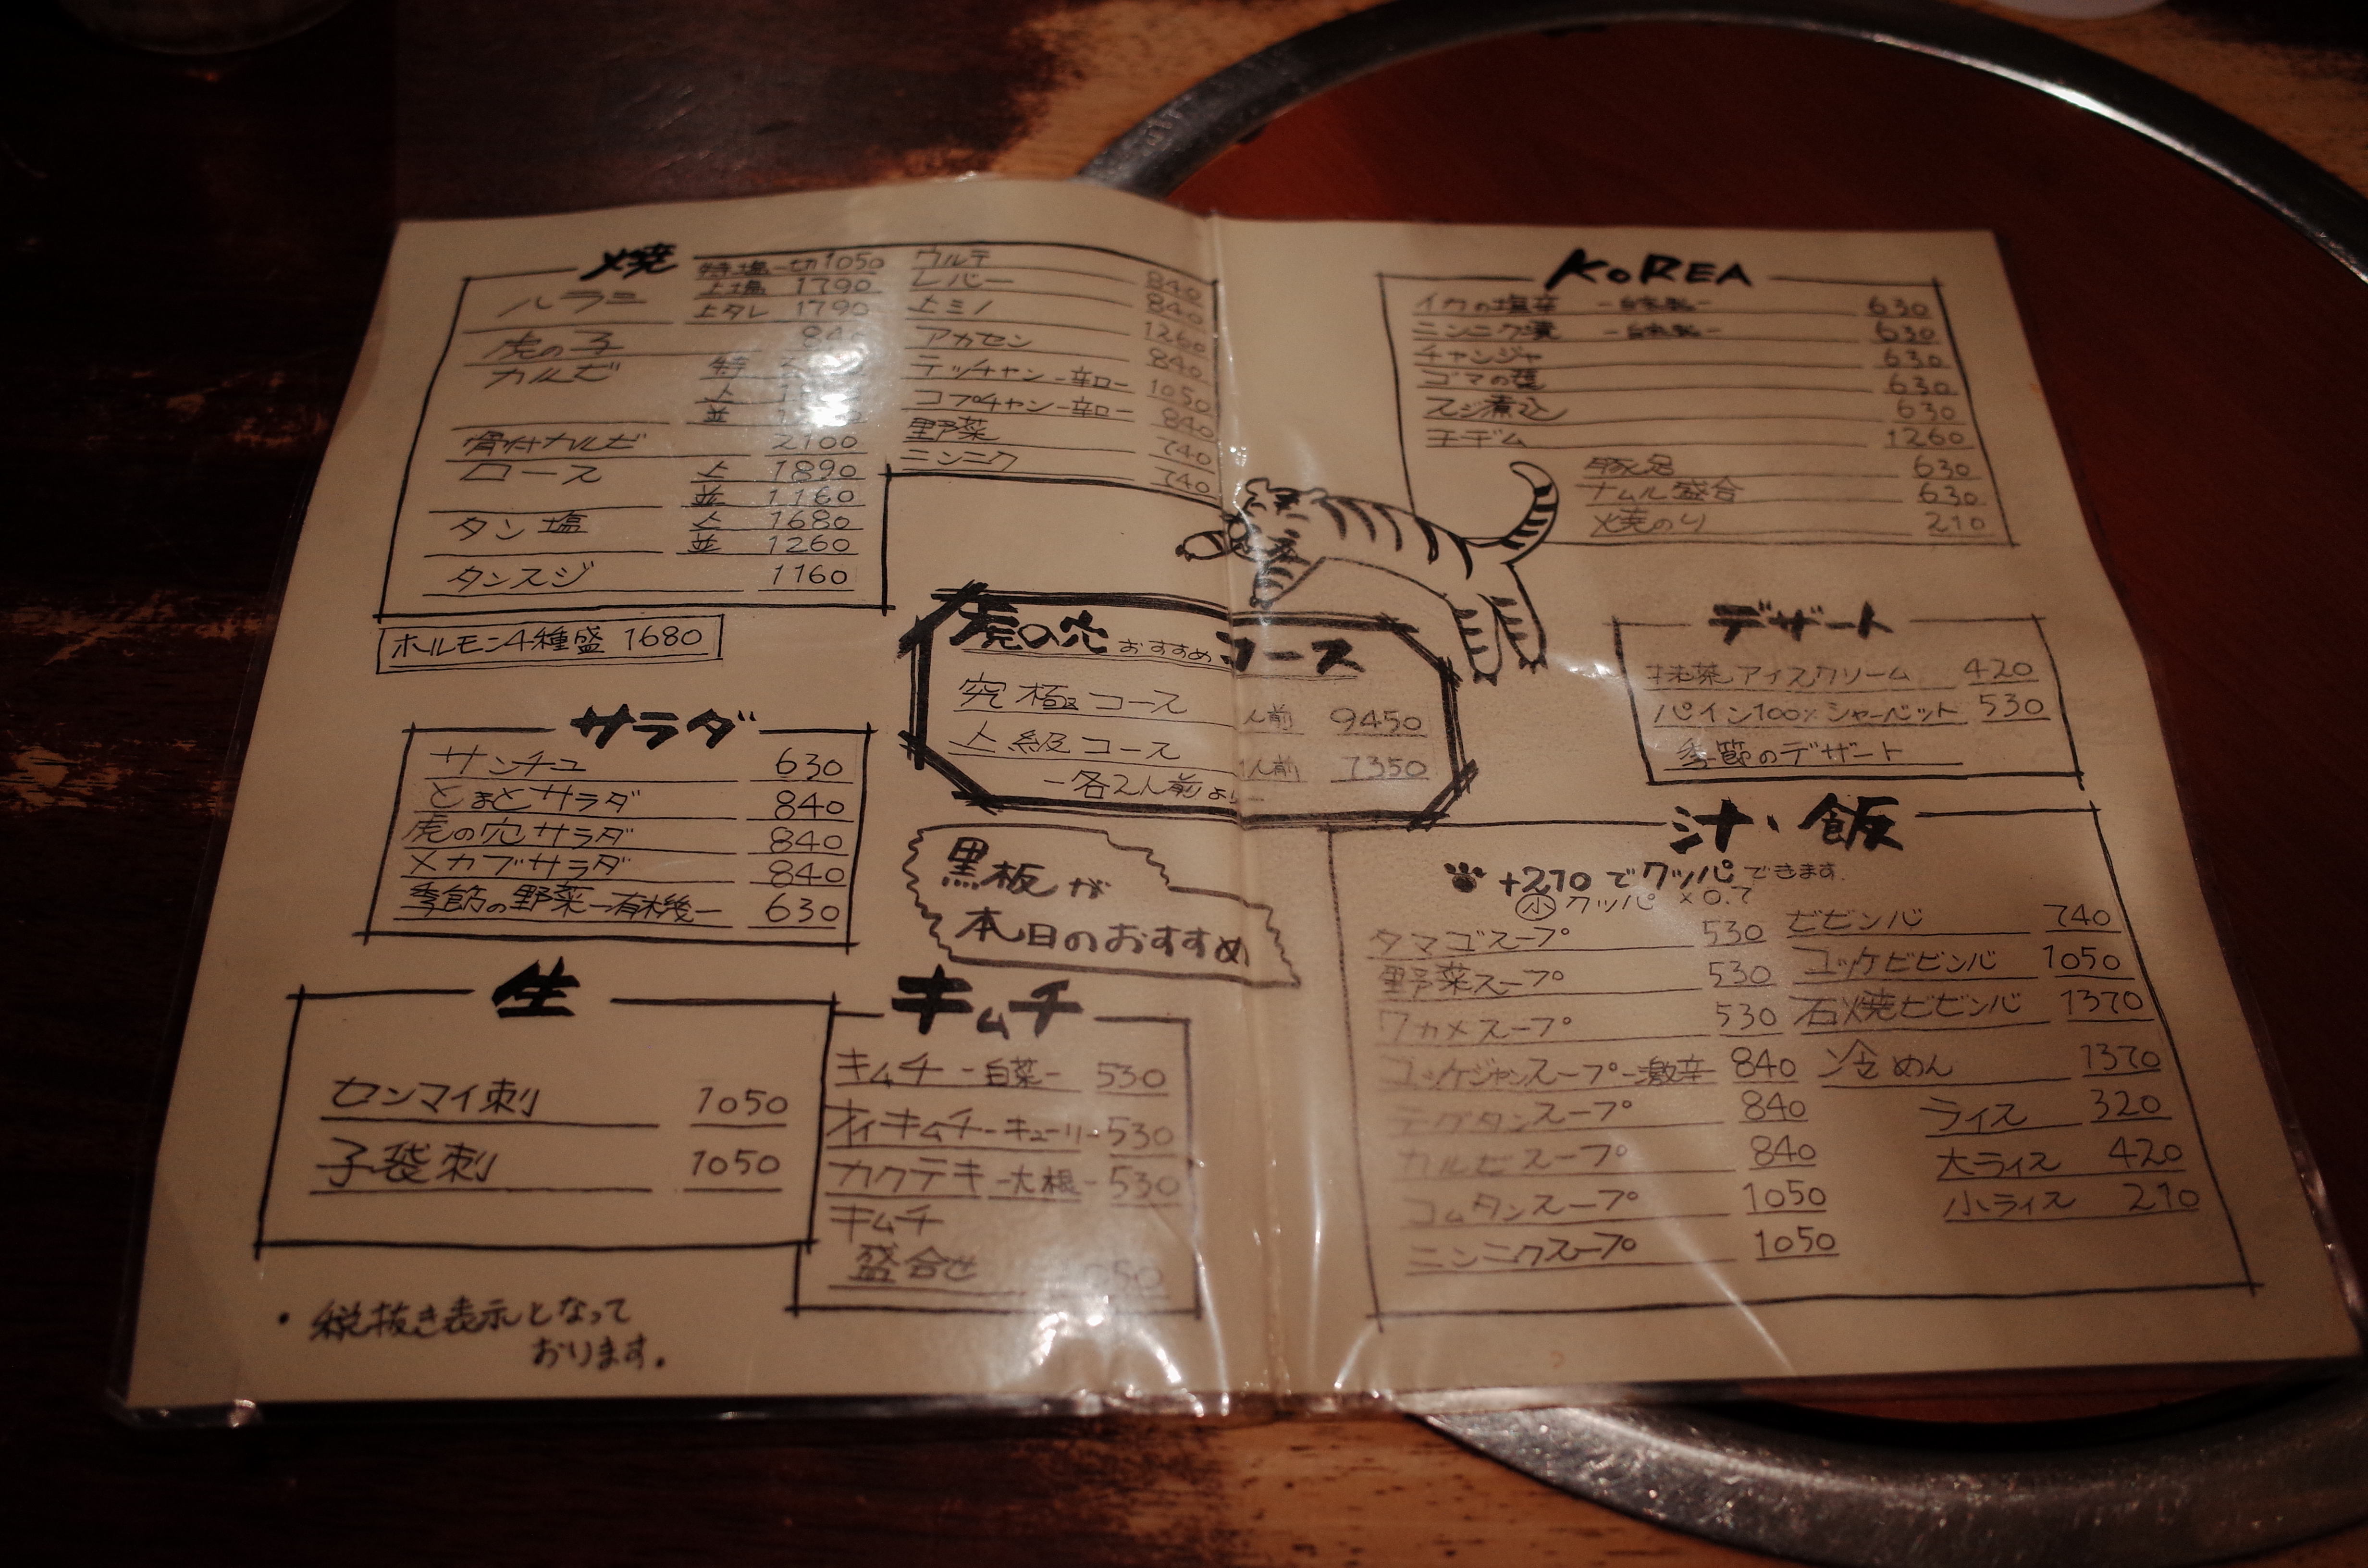 焼
ハラミ 特塩一切 1050
上塩 1790
上タレ 1790
虎の子 840
カルビ 特
上
並
骨付カルビ 2100
ロース 上 1890
並 1160
タン塩 上 1680
並 1260
タンスジ 1160
ウルテ 840
レバー 840
上ミノ 1260
アカセン 840
テッチャン-辛口- 1050
コプチャン-辛口- 840
野菜 740
ニンニク 740
ホルモン4種盛 1680
サラダ
サンチュ 630
とまとサラダ 840
虎の穴サラダ 840
メカブサラダ 840
季節の野菜-有機- 630
生
センマイ刺 1050
子袋刺 1050
・税抜き表示となって
おります。
虎の穴 おすすめ コース
究極コース 人前 9450
上級コース 1人前 7350
-各2人前より-
黒板が
本日のおすすめ
キムチ
キムチ-白菜- 530
オイキムチ-キューリ- 530
カクテキ-大根- 530
キムチ
盛合せ 1050
KOREA
イカの塩辛 -自家製- 630
ニンニク漬 -自家製- 630
チャンジャ 630
ゴマの葉 630
スジ煮込 630
チヂム 1260
豚足 630
ナムル盛合 630
焼のり 210
デザート
抹茶アイスクリーム 420
パイン100%シャーベット 530
季節のデザート
汁、飯
+210でクッパできます。
小クッパ ×0.7
タマゴスープ 530
野菜スープ 530
ワカメスープ 530
ユッケジャンスープ-激辛 840
テグタンスープ 840
カルビスープ 840
コムタンスープ 1050
ニンニクスープ 1050
ビビンバ 740
ユッケビビンバ 1050
石焼ビビンバ 1370
冷めん 1370
ライス 320
大ライス 420
小ライス 210